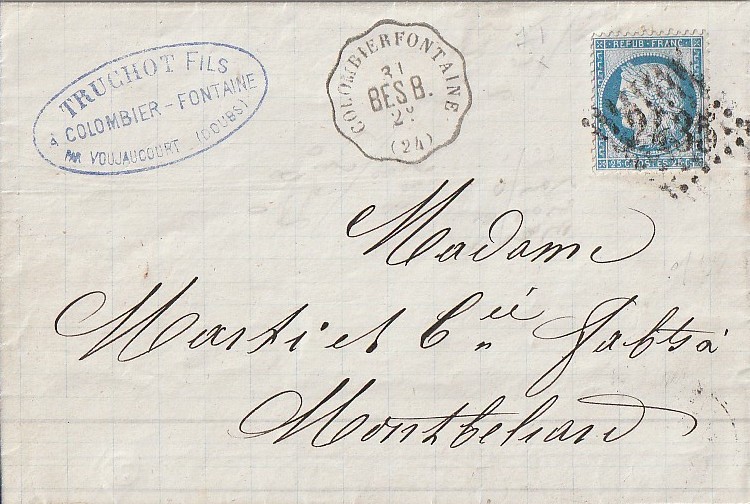 TRUCHOT FILS
À COLOMBIER-FONTAINE
PAR VOUJAUCOURT (DOUBS)
COLOMBIERFONTAINE
31
BES B.
2º
(24)
REPUB. FRANC.
25 C POSTES 25 C
Madame
Marti et Cⁿⁱᵉ Fabts à
Montbeliard